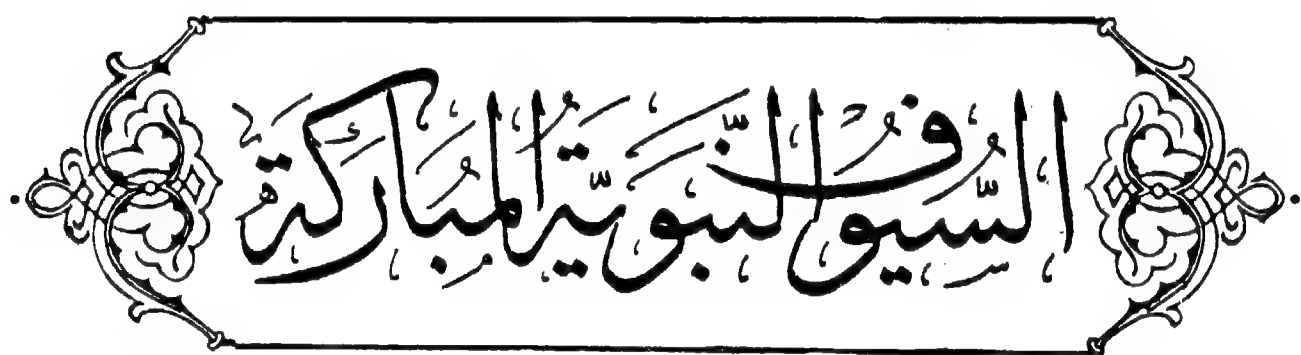 السُّيُوفُ النَّبَوِيَّةُ المُبَارَكَةُ